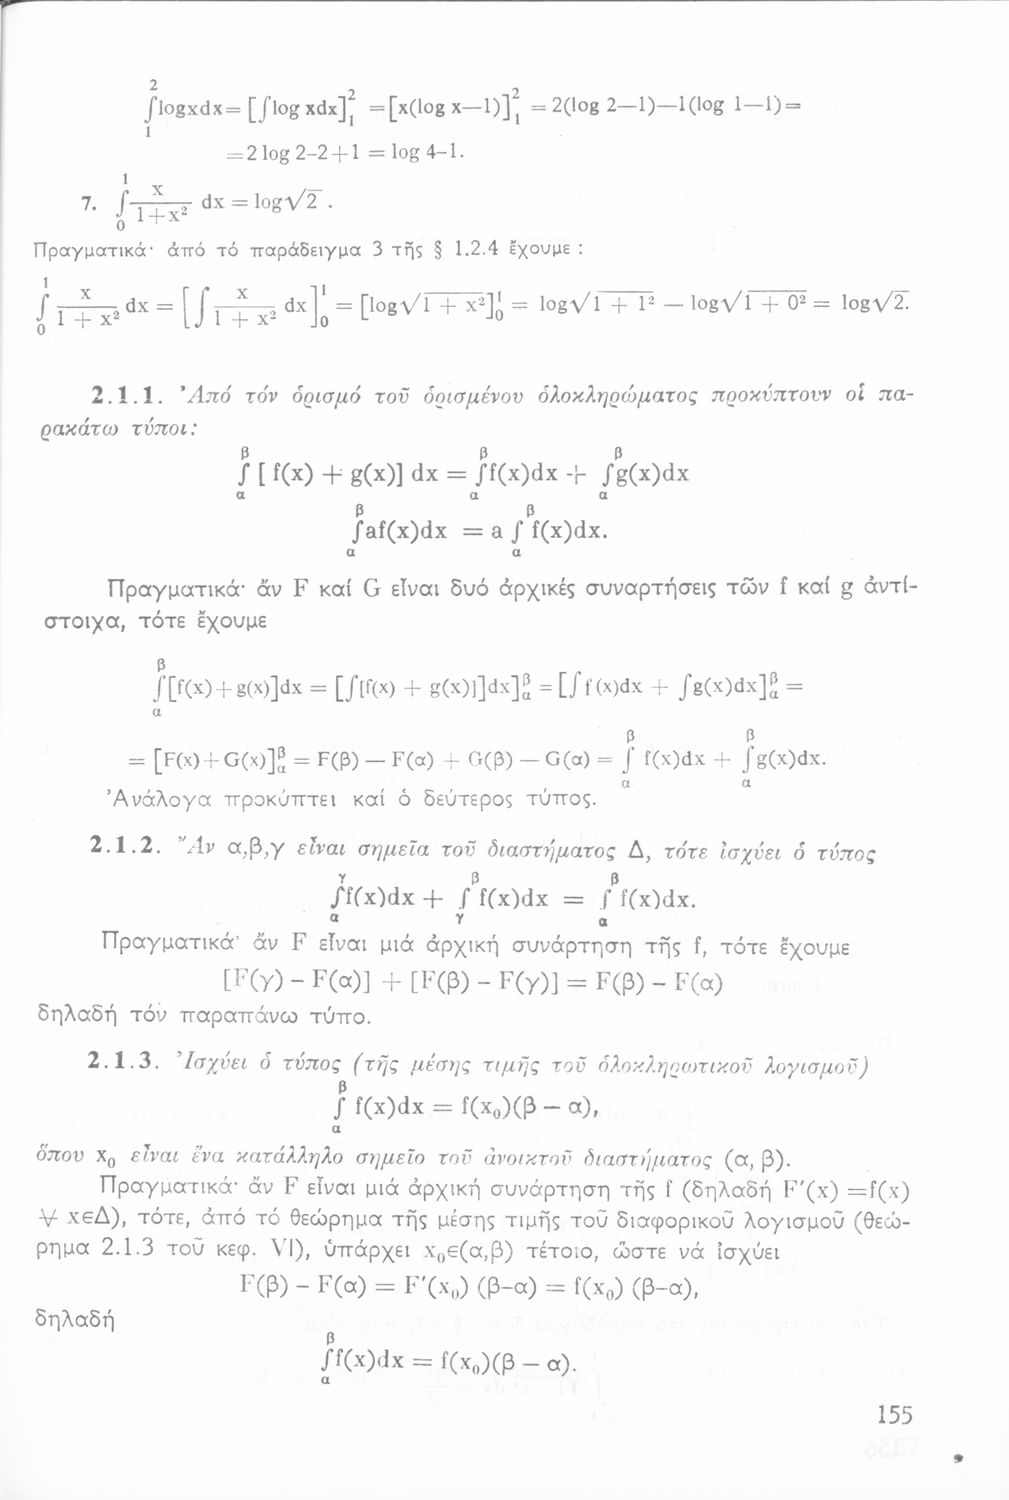 ∫₁² logxdx = [∫log xdx]₁² = [x(log x—1)]₁² = 2(log 2—1)—1(log 1—1)=
=2 log 2-2+1 = log 4-1.
7. ∫₀¹ x/(1+x²) dx = log√2 .
Πραγματικά· ἀπό τό παράδειγμα 3 τῆς § 1.2.4 ἔχουμε :
∫₀¹ x/(1 + x²) dx = [∫ x/(1 + x²) dx]₀¹ = [log√(1 + x²)]₀¹ = log√(1 + 1²) — log√(1 + 0²) = log√2.
2.1.1. Ἀπό τόν ὁρισμό τοῦ ὁρισμένου ὁλοκληρώματος προκύπτουν οἱ πα-
ρακάτω τύποι:
∫ₐᵝ [ f(x) + g(x)] dx = ∫ₐᵝ f(x)dx + ∫ₐᵝ g(x)dx
∫ₐᵝ af(x)dx = a ∫ₐᵝ f(x)dx.
Πραγματικά· ἄν F καί G εἶναι δυό ἀρχικές συναρτήσεις τῶν f καί g ἀντί-
στοιχα, τότε ἔχουμε
∫ₐᵝ [f(x)+g(x)]dx = [∫[f(x) + g(x)]dx]ₐᵝ = [∫f(x)dx + ∫g(x)dx]ₐᵝ =
= [F(x)+G(x)]ₐᵝ = F(β) — F(α) + G(β) — G(α) = ∫ₐᵝ f(x)dx + ∫ₐᵝ g(x)dx.
Ἀνάλογα προκύπτει καί ὁ δεύτερος τύπος.
2.1.2. Ἄν α,β,γ εἶναι σημεῖα τοῦ διαστήματος Δ, τότε ἰσχύει ὁ τύπος
∫ₐᵞ f(x)dx + ∫ᵧᵝ f(x)dx = ∫ₐᵝ f(x)dx.
Πραγματικά· ἄν F εἶναι μιά ἀρχική συνάρτηση τῆς f, τότε ἔχουμε
[F(γ) - F(α)] + [F(β) - F(γ)] = F(β) - F(α)
δηλαδή τόν παραπάνω τύπο.
2.1.3. Ἰσχύει ὁ τύπος (τῆς μέσης τιμῆς τοῦ ὁλοκληρωτικοῦ λογισμοῦ)
∫ₐᵝ f(x)dx = f(x₀)(β — α),
ὅπου x₀ εἶναι ἕνα κατάλληλο σημεῖο τοῦ ἀνοικτοῦ διαστήματος (α, β).
Πραγματικά· ἄν F εἶναι μιά ἀρχική συνάρτηση τῆς f (δηλαδή F′(x) =f(x)
∀ xεΔ), τότε, ἀπό τό θεώρημα τῆς μέσης τιμῆς τοῦ διαφορικοῦ λογισμοῦ (θεώ-
ρημα 2.1.3 τοῦ κεφ. VI), ὑπάρχει x₀ε(α,β) τέτοιο, ὥστε νά ἰσχύει
F(β) - F(α) = F′(x₀) (β-α) = f(x₀) (β-α),
δηλαδή
∫ₐᵝ f(x)dx = f(x₀)(β — α).
155